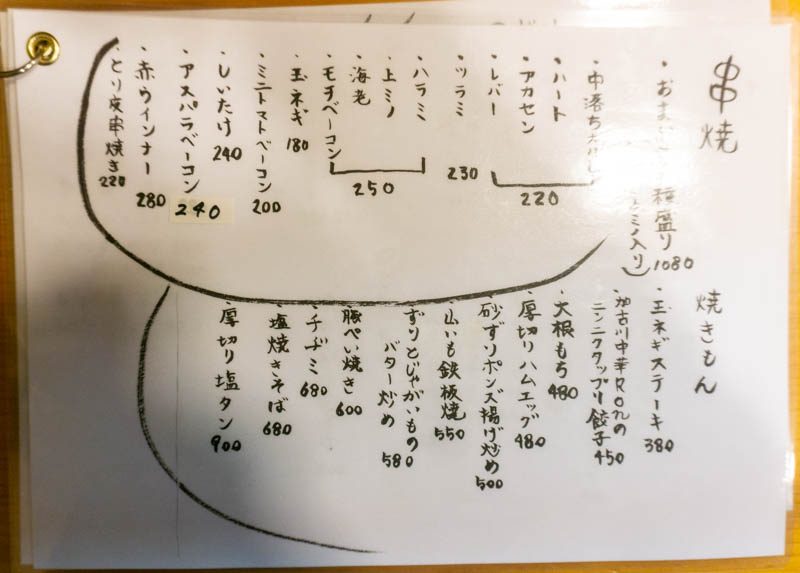 串焼
・おま 種盛り 1080
ミノ入り)
・中落ち
・ハート
アカセン
・レバー
220
・ツラミ
230
・ハラミ
・上ミノ
・海老
・モチベーコン
250
・玉ネギ 180
・ミニトマトベーコン 200
・しいたけ 240
・アスパラベーコン 240
・赤ウインナー 280
・とり皮串焼き 220
焼きもん
・玉ネギステーキ 380
・加古川中華RONの
ニンニクタップリ餃子 450
・大根もち 480
・厚切りハムエッグ 480
・砂ずりポンズ揚げ炒め 500
・山いも鉄板焼 550
・ずりとじゃがいもの
バター炒め 580
・豚ぺい焼き 600
・チヂミ 680
・塩焼きそば 680
・厚切り塩タン 900